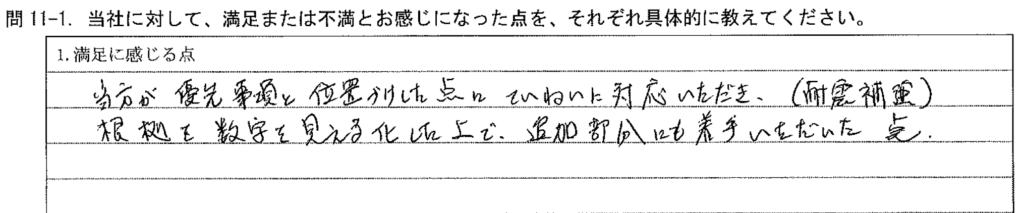 問 11-1. 当社に対して、満足または不満とお感じになった点を、それぞれ具体的に教えてください。
1.満足に感じる点
当方が 優先事項と 位置づけした点に ていねいに対応いただき、(耐震補強)
根拠を 数字で見える化した上で、追加部分にも着手いただいた 点.